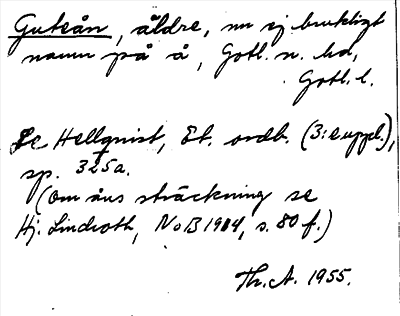 Guteån, äldre, nu ej brukligt
namn på å, Gotl. n. hd,
Gotl. l.
Se Hellquist, Et. ordb. (3:e uppl.),
sp. 325a.
(om åns sträckning se
Hj. Lindroth, NoB 1914, s. 80 f.)
Th. A. 1955.